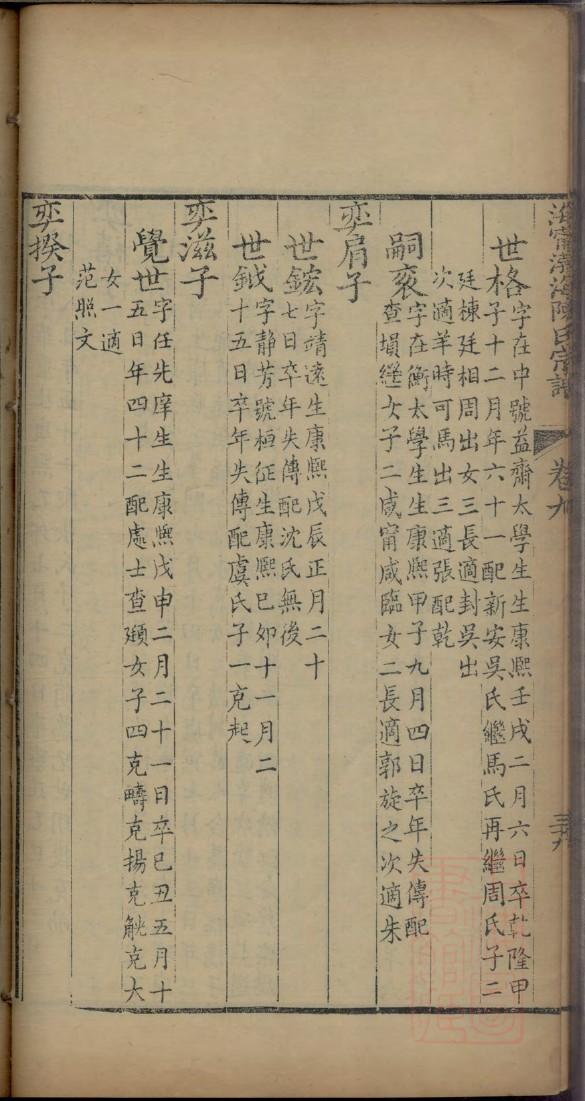 海寧渤海陳氏宗譜
卷九
三十九
世格
字在中號益齋太學生生康熙壬戌二月六日卒乾隆甲
子十二月年六十一配新安吳氏繼馬氏再繼周氏子二
廷棟廷相周出女三長適封吳出
次適羊時可馬出三適張配乾
嗣袞
字在衡太學生生康熙甲子九月四日卒年失傳配
查塤繼女子二咸甯咸臨女二長適郭旋之次適朱
奕肩子
世鋐
字靖遠生康熙戊辰正月二十
七日卒年失傳配沈氏無後
世鉞
字靜芳號桓征生康熙己卯十一月二
十五日卒年失傳配虞氏子一克起
奕滋子
覺世
字任先庠生生康熙戊申二月二十一日卒己丑五月十
五日年四十二配處士查頲女子四克疇克揚克觥克大
女一適
范照文
奕揆子